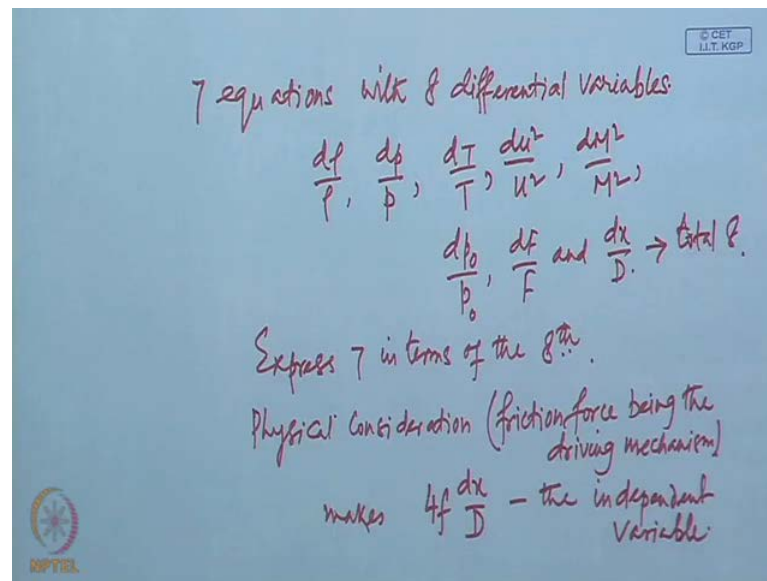 © CET
I.I.T. KGP
7 equations with 8 differential variables.
dρ/ρ, dp/p, dT/T, du²/u², dM²/M²,
dp₀/p₀, dF/F and dx/D. → total 8.
Express 7 in terms of the 8th.
Physical Consideration (friction force being the
driving mechanism)
makes 4f dx/D - the independent
variable.
NPTEL